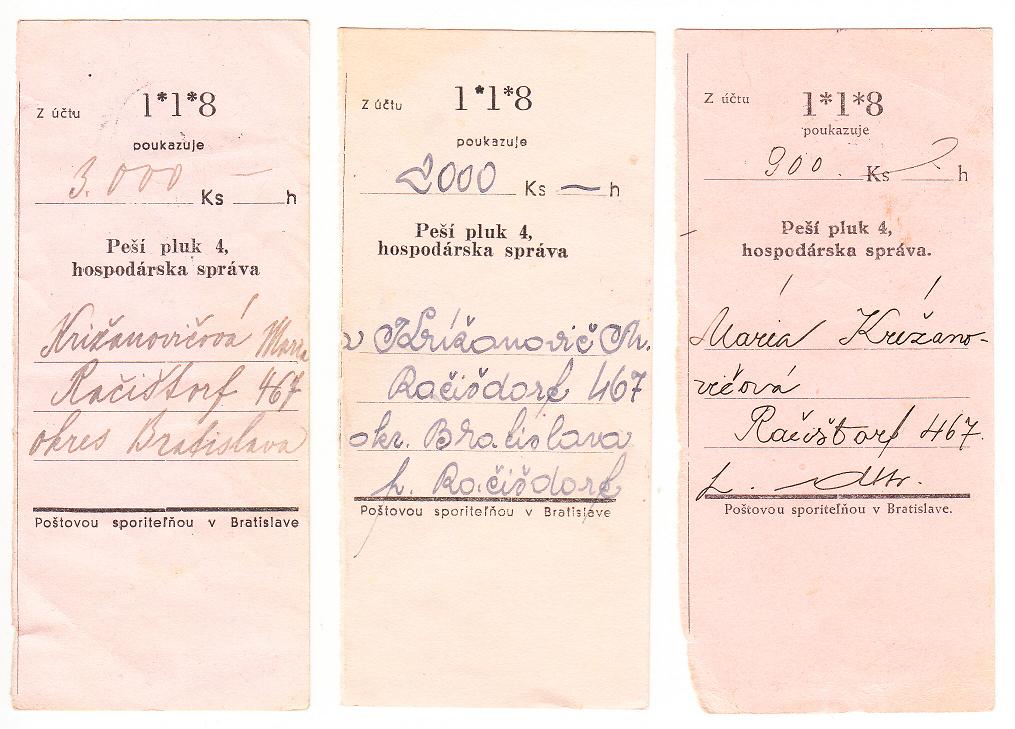 Z účtu 1*1*8
poukazuje
3.000 Ks — h
Peší pluk 4,
hospodárska správa
Križanovičová Maria
Račištorf 467
okres Bratislava
Poštovou sporiteľňou v Bratislave
Z účtu 1*1*8
poukazuje
2000 Ks — h
Peší pluk 4,
hospodárska správa
Križanovič M.
Račišdorf 467
okr. Bratislava
p. Račišdorf
Poštovou sporiteľňou v Bratislave
Z účtu 1*1*8
poukazuje
900. Ks h
Peší pluk 4,
hospodárska správa.
Mária Križano-
vičová
Račištorf 467.
Poštovou sporiteľňou v Bratislave.